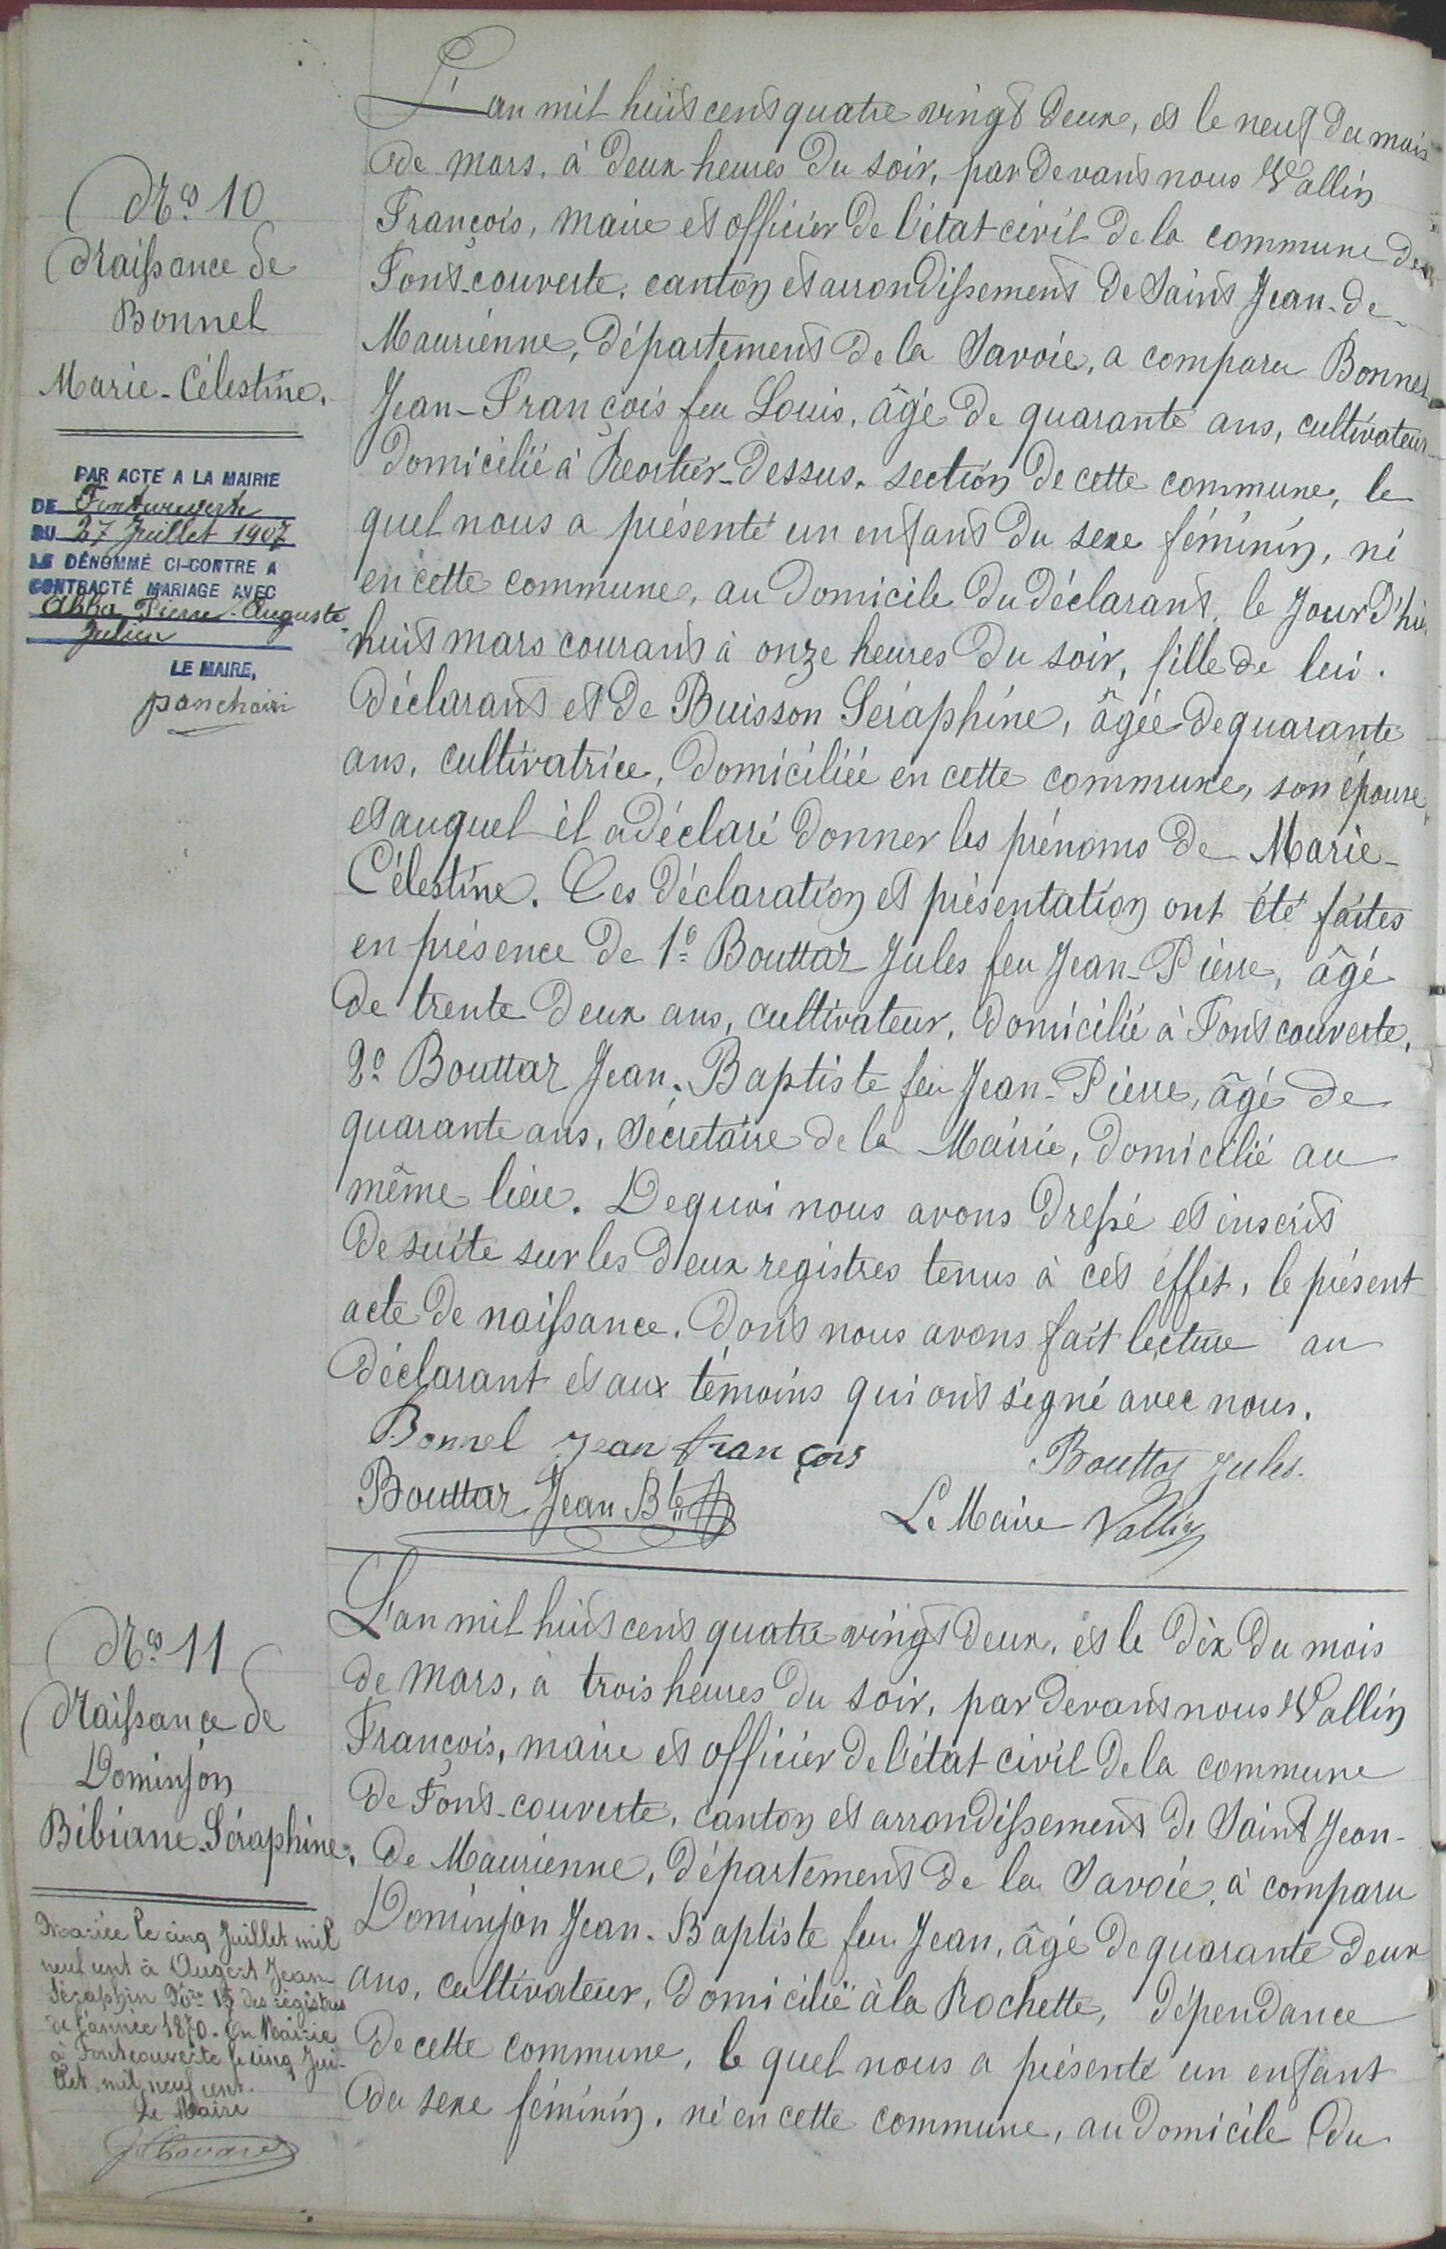 N° 10
Naissance de
Bonnel
Marie-Célestine.
PAR ACTE A LA MAIRIE
DE Fontcouverte
DU 27 Juillet 1907
LE DÉNOMMÉ CI-CONTRE A
CONTRACTÉ MARIAGE AVEC
Pierre-Auguste
Julien
LE MAIRE,
L'an mil huit cent quatre vingt deux, et le neuf du mois
de mars, à deux heures du soir, par devant nous Vallin
François, maire et officier de l'état civil de la commune de
Font-couverte, canton et arrondissement de Saint Jean-de-
Maurienne, département de la Savoie, a comparu Bonnel
Jean-François feu Louis, âgé de quarante ans, cultivateur
domicilié à dessus, section de cette commune, le
quel nous a présenté un enfant du sexe féminin, né
en cette commune, au domicile du déclarant, le jour d'hier
huit mars courant à onze heures du soir, fille de lui
déclarant et de Buisson Séraphine, âgée de quarante
ans, cultivatrice, domiciliée en cette commune, son épouse,
et auquel il a déclaré donner les prénoms de Marie-
Célestine. Ces déclaration et présentation ont été faites
en présence de 1° Bouttaz Jules feu Jean-Pierre, âgé
de trente deux ans, cultivateur, domicilié à Fontcouverte,
2° Bouttaz Jean-Baptiste feu Jean-Pierre, âgé de
quarante ans, Secrétaire de la Mairie, domicilié au
même lieu. De quoi nous avons dressé et inscrit
de suite sur les deux registres tenus à cet effet, le présent
acte de naissance, dont nous avons fait lecture au
déclarant et aux témoins qui ont signé avec nous.
Bonnel jean françois Bouttaz Jules
Bouttaz Jean Bte Le Maire Vallin
N° 11
Naissance de
Dominjon
Bibiane-Séraphine.
Mariée le cinq Juillet mil
neuf cent à Augert Jean-
Séraphin No 15 des registres
de l'année 1870. En Mairie
à Fontcouverte le cinq Jui-
llet mil neuf cent.
Le Maire
L'an mil huit cent quatre vingt deux, et le dix du mois
de mars, à trois heures du soir, par devant nous Vallin
François, maire et officier de l'état civil de la commune
de Font-couverte, canton et arrondissement de Saint Jean-
de Maurienne, département de la Savoie, a comparu
Dominjon Jean-Baptiste feu Jean, âgé de quarante deux
ans, cultivateur, domicilié à la Rochette, dépendance
de cette commune, le quel nous a présenté un enfant
du sexe féminin, né en cette commune, au domicile du